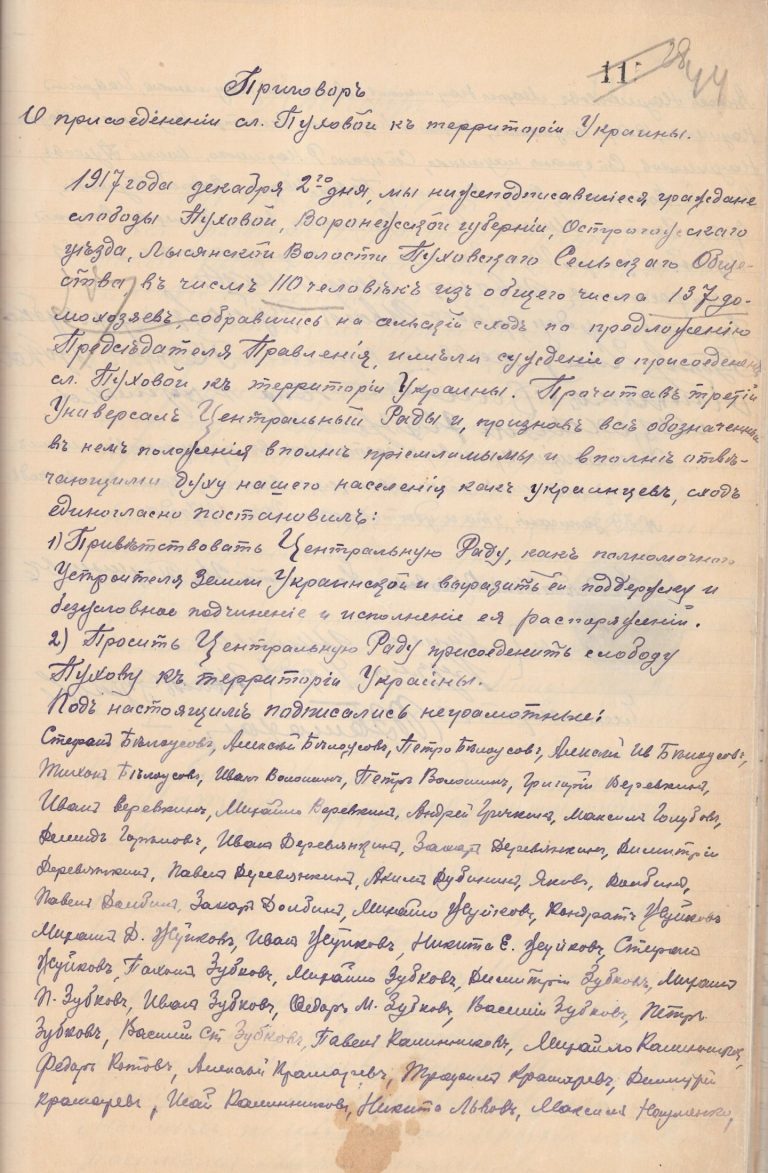 11
28
44
Приговоръ
О присоедененіи сл. Пуховой къ территоріи Украины.
1917 года декабря 2го дня, мы нижеподписавшіеся граждане
слободы Пуховой, Воронежской губерніи, Острогожскаго
уѣзда, Лысянской Волости Пуховскаго Сельскаго Обще-
ства, въ числѣ 110 человѣкъ изъ общего числа 137 до-
мохозяевъ, собравшись на сходъ по предложенію
Предсѣдателя Правленія, имѣли сужденіе о присоеденен
сл. Пуховой къ территоріи Украины. Прочитавъ третій
Универсалъ Центральный Рады и, признавъ всѣ обозначенныя
въ немъ положенія вполнѣ пріемлимымы и вполнѣ отвѣ-
чающими духу нашего населенія какъ украинцевъ, сходъ
единогласно постановилъ:
1) Привѣтствовать Центральную Раду, какъ полномочного
Устроителя Земли Украинской и выразить ей поддержку и
безусловное подчиненіе и исполненіе ея распоряженій.
2) Просить Центральную Раду присоеденить слободу
Пухову къ территоріи Украины.
Подъ настоящимъ подписались неграмотные:
Стефанъ Бѣлоусовъ, Алексѣй Бѣлоусовъ, Петро Бѣлоусовъ, Алексѣй Ив Бѣлоусовъ,
Тихонъ Бѣлоусовъ, Иванъ Волошинъ, Петръ Волошинъ, Григорій Веревкинъ,
Иванъ Веревкинъ, Михайло Веревкинъ, Андрей Гричкинъ, Максимъ Голубовъ,
Демидъ Иванъ Деревянкинъ, Захаръ Деревянкинъ, Димитрій
Деревянкинъ, Павелъ Деревянкинъ, Акимъ Дубининъ, Яковъ, Долбинъ,
Павелъ Долбинъ, Захаръ Долбинъ, Михайло Жуйковъ, Кондратъ Жуйковъ
Михаилъ Д. Жуйковъ, Иванъ Жуйковъ, Никита Е. Жуйковъ, Стефанъ
Жуйковъ, Пахомъ Зубковъ, Михайло Зубковъ, Димитрій Зубковъ, Михаилъ
П. Зубковъ, Иванъ Зубковъ, Федоръ М. Зубковъ, Василій Зубковъ, Петръ
Зубковъ, Василій Ст Зубковъ, Павелъ Калинниковъ, Михайло
Федоръ Котовъ, Алексѣй Крамаревъ, Трофимъ Крамаревъ, Димитрій
Крамаревъ, Исай Калинниковъ, Никита Львовъ, Максимъ Науменко,